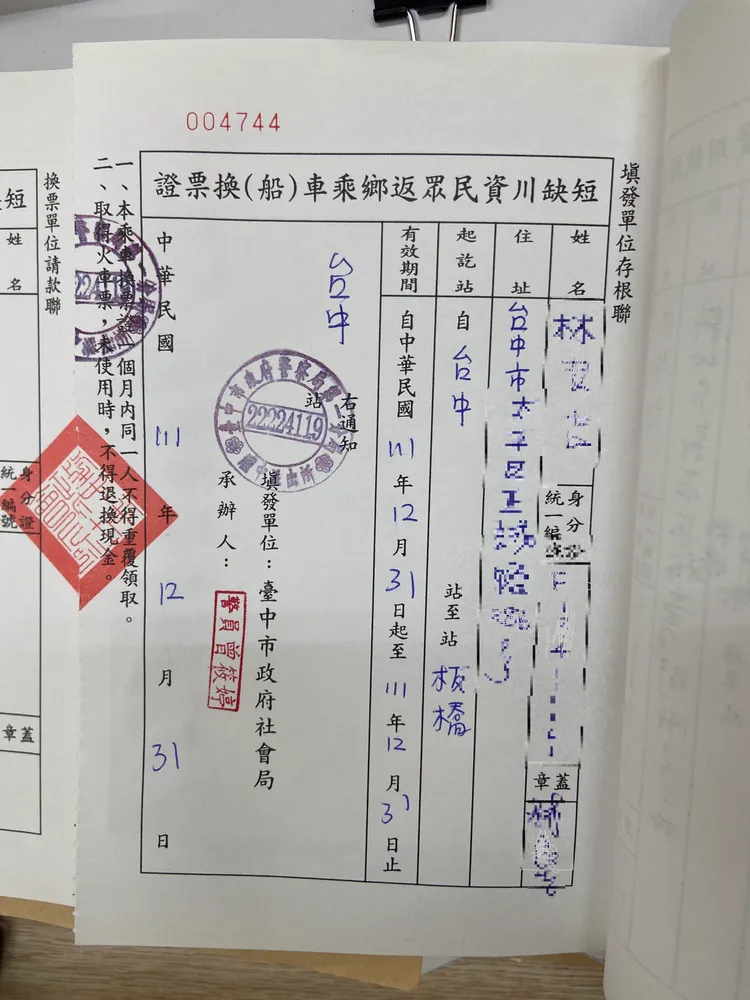 004744
填發單位存根聯
短缺川資民眾返鄉乘車(船)換票證
姓名
林
身分
統一編
蓋章
住址
台中市太平區
起訖站
自台中
站至站
板橋
有效期間
自中華民國111年12月31日起至111年12月31日止
右通知
台中
站
22224119
填發單位：臺中市政府社會局
承辦人：
警員曾筱婷
中華民國111年12月31日
一、本乘車換票證一個月內同一人不得重覆領取。
二、取得火車票，未使用時，不得退換現金。
換票單位請款聯
短
姓名
身分證
統一編號
蓋章